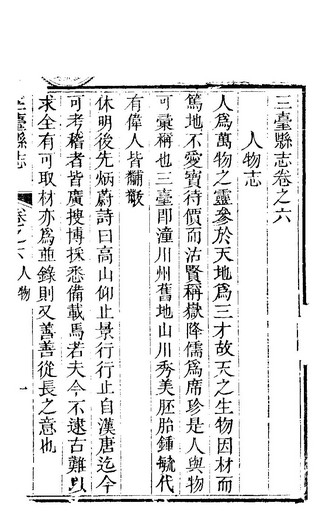 三臺縣志卷之六
人物志
人爲萬物之靈參於天地爲三才故天之生物因材而
篤地不愛寶待價而沽賢稱嶽降儒爲席珍是人與物
可彙稱也三臺即潼川州舊地山川秀美胚胎鍾毓代
有偉人皆黼黻
休明後先炳蔚詩曰高山仰止景行行止自漢唐迄今
可考稽者皆廣搜博採悉備載焉若夫今不逮古難以
求全有可取材亦爲並錄則又善善從長之意也
三臺縣志
卷之六人物
一